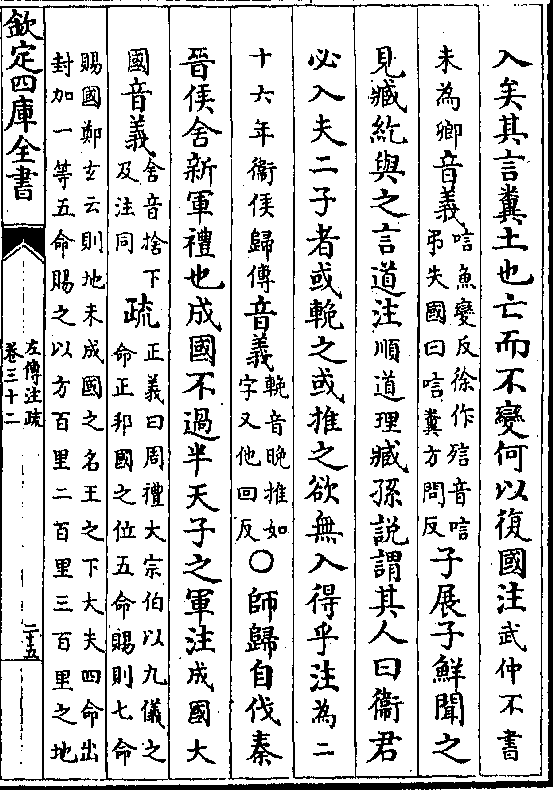 入矣其言糞土也亡而不變何以復國注武仲不書
未為卿音義唁魚變反徐作殗音唁
弔失國曰唁糞方問反子展子鮮聞之
見臧紇與之言道注順道理臧孫說謂其人曰衞君
必入夫二子者或輓之或推之欲無入得乎注為二
十六年衞侯歸傳音義輓音晚推如
字又他回反○師歸自伐秦
晉侯舍新軍禮也成國不過半天子之軍注成國大
國音義舍音捨下
及注同疏正義曰周禮大宗伯以九儀之
命正邦國之位五命賜則七命
賜國鄭玄云則地未成國之名王之下大夫四命出
封加一等五命賜之以方百里二百里三百里之地
欽定四庫全書
左傳注疏
卷三十二
二十五